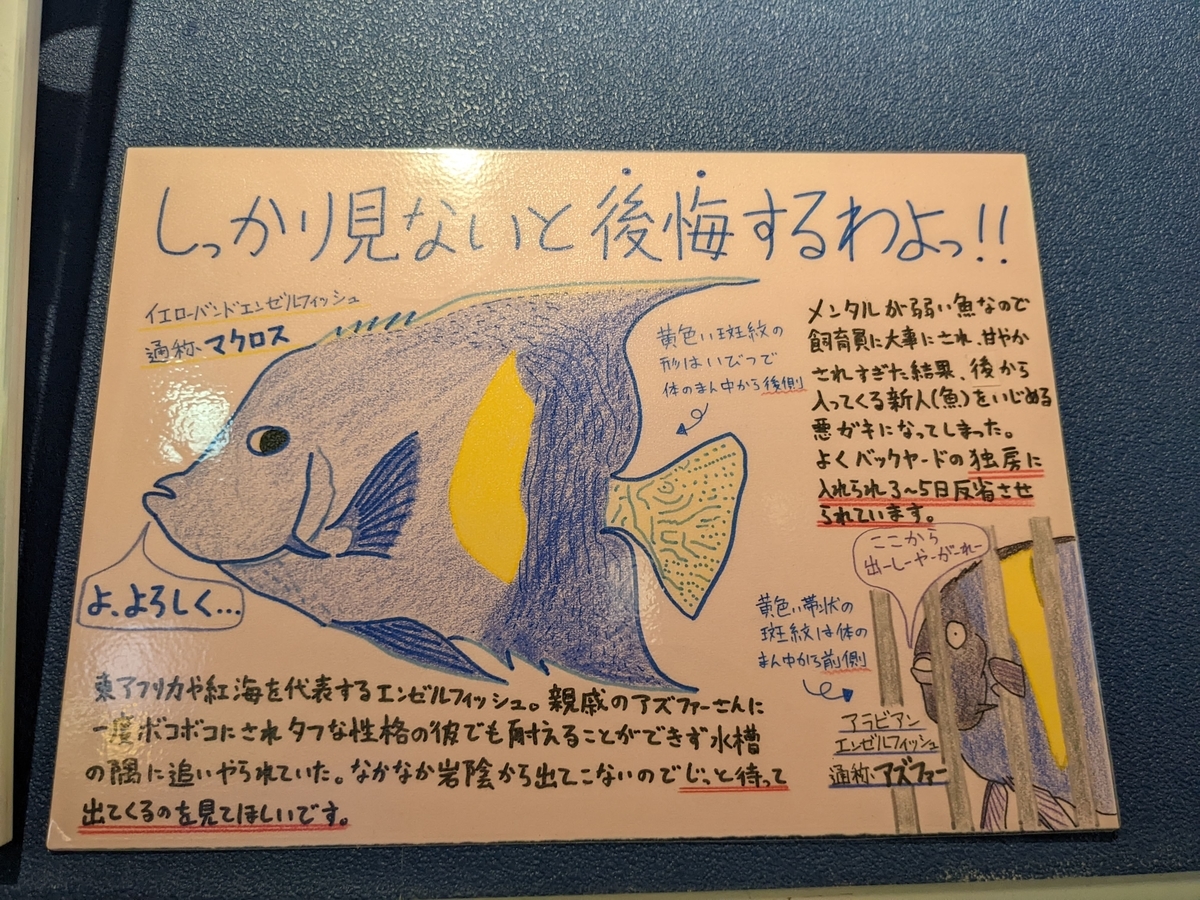 しっかり見ないと後悔するわよっ!!
イエローバンドエンゼルフィッシュ
通称マクロス
黄色い斑紋の
形はいびつで
体のまん中から後側
よ、よろしく…
メンタルが弱い魚なので
飼育員に大事にされ、甘やか
されすぎた結果、後から
入ってくる新人(魚)をいじめる
悪ガキになってしまった。
よくバックヤードの独房に
入れられ3〜5日反省させ
られています。
ここから
出ーしーやーがーれー
黄色い帯状の
斑紋は体の
まん中から前側
アラビアン
エンゼルフィッシュ
通称アズファー
東アフリカや紅海を代表するエンゼルフィッシュ。親戚のアズファーさんに
一度ボコボコにされタフな性格の彼でも耐えることができず水槽
の隅に追いやられていた。なかなか岩陰から出てこないのでじっと待って
出てくるのを見てほしいです。